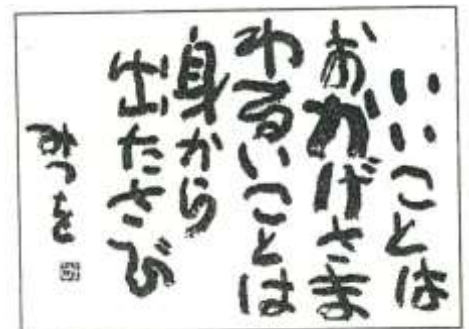 いいことは
おかげさま
わるいことは
身から
出たさび
みつを